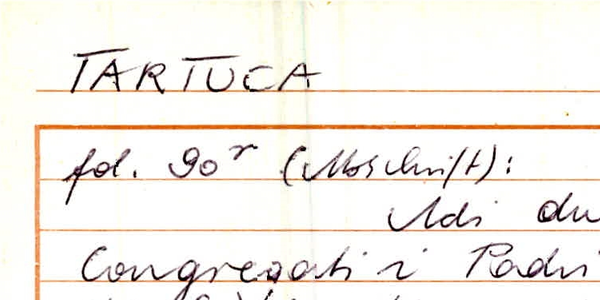 TARTUCA
fol. 90r (Abschrift):
Adi du
Congregati i Padri